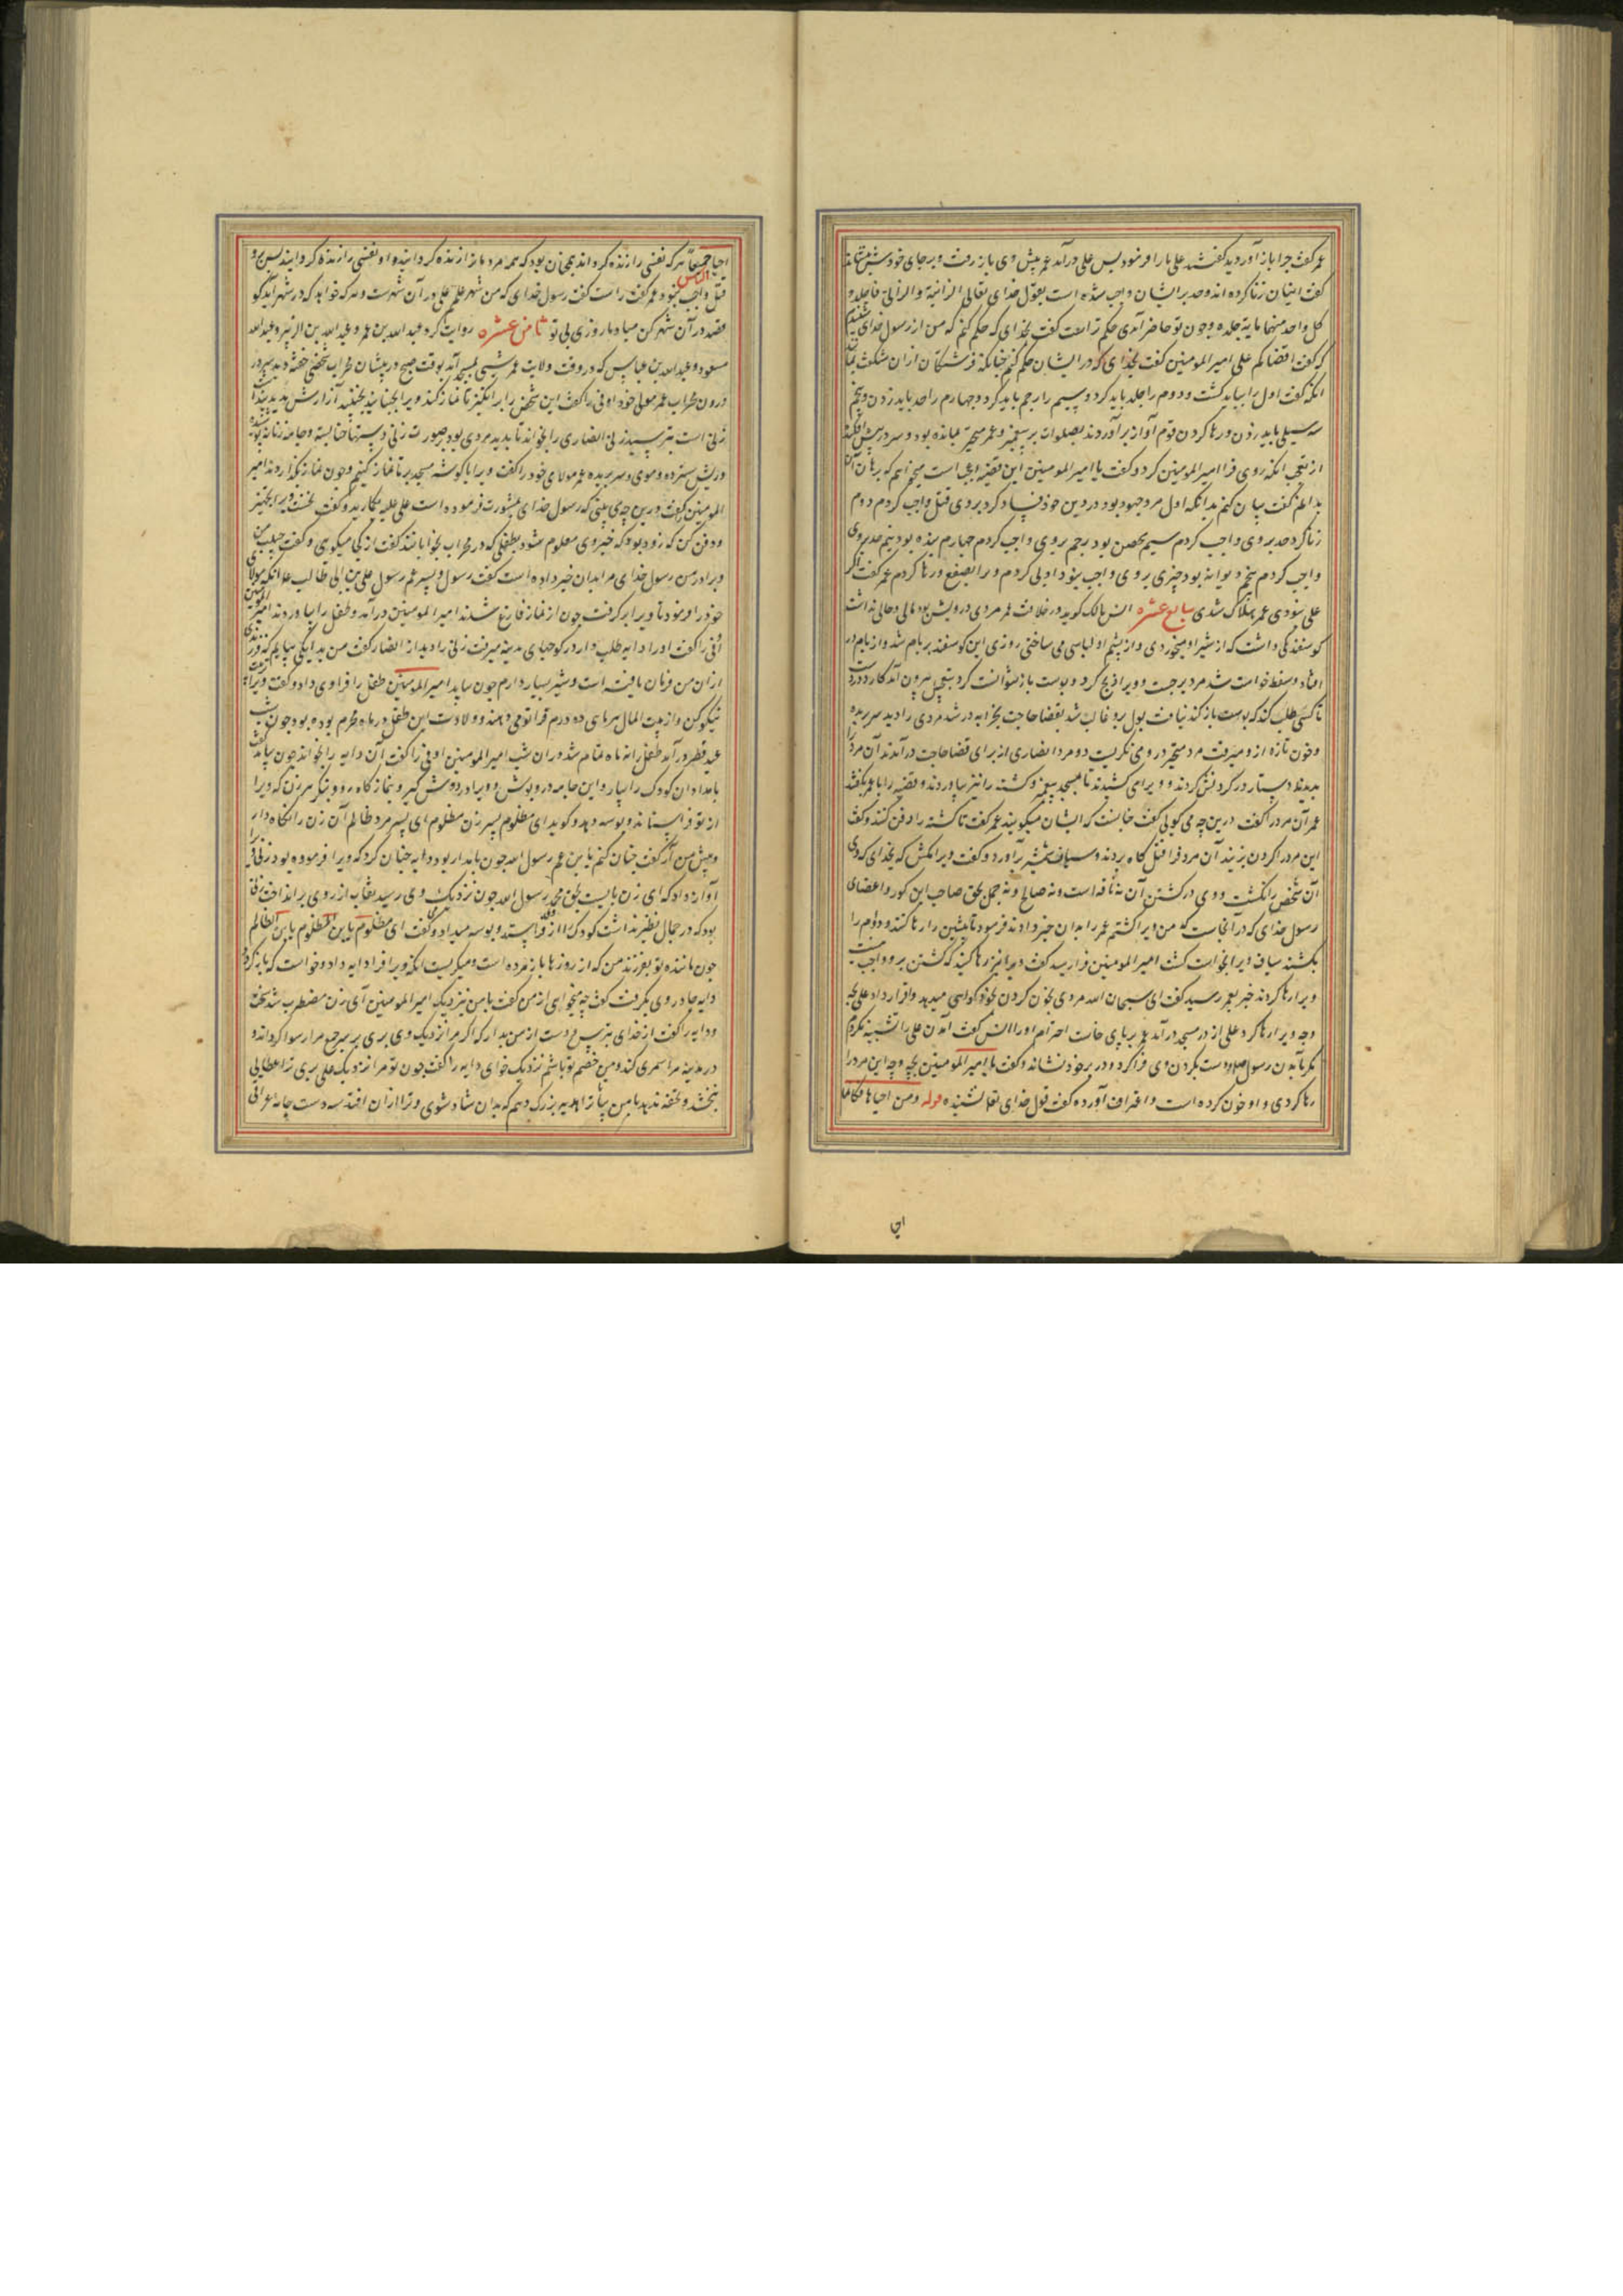 عمر گفت چرا باز آوردید گفتند علی ما را فرمود پس علی درآمد عمر پیش وی باز رفت و بر جای خودش بنشاند
گفت اینان زنا کرده اند و حد بر ایشان واجب شده است بقول خدای تعالی الزانیة والزانی فاجلدوا
کل واحد منهما مایة جلده و چون تو حاضر آمدی حکم تراست گفت بخدای که حکم کنم که من از رسول خدای شنیدم
که گفت اقضاکم علی امیر المومنین گفت بخدای که در ایشان حکم کنم چنانکه فرشتگان از ان شگفت
انکه گفت اول را بباید کشت و دوم را جلد باید کرد و سیم را رجم باید کرد و چهارم را حد باید زدن و پنجم
سه سیلی باید زدن و رها کردن قوم آواز برآوردند بصلوات بر پیغمبر و عمر متحیر بمانده بود و سر در پیش افکنده
از تعجب انکه روی فرا امیر المومنین کرد و گفت یا امیر المومنین این قضیه عجب است میخواهم که برهان آن
بدانم گفت بیان کنم بدانکه اول مرد جهود بود در دین خود فساد کرد بر وی قتل واجب کردم دوم
زنا کرد حد بر وی واجب کردم سیم محصن بود رجم بر وی واجب کردم چهارم بنده بود نیم حد بر وی
واجب کردم پنجم دیوانه بود چیزی بر وی واجب نبود ادبی کردم ویرا بصفع و رها کردم عمر گفت اگر
علی نبودی عمر بهلاک شدی سابع عشره انس مالک گوید در خلافت عمر مردی درویش بود مالی و حالی نداشت
گوسفندکی داشت که از شیر او میخوردی و از پشم او لباسی می ساختی روزی این گوسفند بر بام شد و از بام در
افتاد و سقط خواست شد مرد برجست و ویرا ذبح کرد و پوست باز نتوانست کرد بتعجیل بیرون آمد کارد در دست
تا کسی طلب کند که پوست باز کند نیافت بول برو غالب شد بقضا حاجت بخرابه در شد مردی را دید سر بریده
و خون تازه از و میرفت مرد متحیر در وی نگریست دو مرد انصاری از برای قضا حاجت درآمدند آن مرد را
بدیدند دستار در گردنش کردند و ویرا می کشیدند تا بمسجد پیغمبر و کشته را نیز بیاوردند و قصه را با عمر بگفتند
عمر آن مرد را گفت درین چه می گویی گفت چنانست که ایشان میگویند عمر گفت تا کشته را دفن کنند و گفت
این مرد را گردن بزنید آن مرد فرا قتل گاه بردند و سیاف شمشیر برآورد و گفت ویرا مکش که بخدای که وی
آن شخص را نکشت و وی در کشتن آن نه ناقه است و نه صالح و نه جمل بحق صاحب این گور و اعضای
رسول خدای که در آنجاست که من ویرا کشتم عمر را بدان خبر دادند فرمود تا پیشین را رها کنند و دوم را
بکشند سیاف ویرا بخواست کشت امیر المومنین فرا رسید گفت ویرا نیز رها کنید که کشتن برو واجب نیست
ویرا رها کردند خبر بعمر رسید گفت ای سبحان الله مردی بخون کردن بخود گواهی میدهد و اقرار داد علی بچه
وجه ویرا رها کرد علی از در مسجد درآمد عمر بر پای خاست احترام او را انس گفت آمدن علی را تشبیه نکردم
مگر بآمدن رسول صلی دست بگردن وی فرا کرد و در بر خود نشاند و گفت یا امیر المومنین بچه وجه این مرد را
رها کردی و او خون کرده است و اعتراف آورده گفت قول خدای تعا نشنیده قوله ومن احیاها فکانما
احیا
احیا الناس جمیعا هر که نفسی را زنده گرداند همچنان بود که همه مردمانرا زنده گردانیده او نفسی را زنده گردانید پس برو
قتل واجب نبود عمر گفت راست گفت رسول خدای که من شهر علمم علی در آن شهرست و هر که خواهد که در شهر آید گو
قصد در آن شهر کن مبادا روزی بی تو ثامن عشره روایت کرد عبد الله بن عمر و عبد الله بن الزبیر و عبد الله
مسعود و عبد الله بن عباس که در وقت ولایت عمر شبی بمسجد آمد بوقت صبح در پیشان محراب شخصی خفته دید سر در
درون محراب عمر مولی خود اوفی را گفت این شخص را برانگیز تا نماز کند ویرا بجنبانید نجنبید آزارش بدید پنداشت
زنی است بترسید زنی انصاری را بخواند تا بدید مردی بود بصورت زنی دستها حنا بسته و جامه زنانه پوشیده
و ریش سترده و موی و سر بریده عمر مولای خود را گفت ویرا با گوشه مسجد بر تا نماز کنیم و چون نماز بگزاردند امیر
المومنین را گفت درین چه می بینی که رسول خدای مشورت فرموده است علی علیه بگریید و گفت تجهیز
و دفن کن که زود بود که خبر وی معلوم شود بطفلی که در محراب بخواباند گفت از کی میگوی و گفت حبیب من
و برادر من رسول خدای مرا بدان خبر داده است گفت رسول و پسر عم رسول علی بن ابی طالب علم انکه مولای
خود را فرمود تا ویرا برگرفت چون از نماز فارغ شدند امیر المومنین درآمد و طفل را بیاوردند امیر المومنین
اوفی را گفت او را دایه طلب دار در کوچهای مدینه میرفت زنی را دید از انصار گفت من بدایگی بیایم که فرزندی
از ان من فرمان یافته است و شیر بسیار دارم چون بیاید امیر المومنین طفل را فرا وی داد و گفت ویرا تربیت
نیکو کن و از بیت المال هر ماهی ده درم فرا تو می دهند و ولادت این طفل در ماه محرم بوده بود چون شب
عید فطر درآمد طفل را نه ماه تمام شد در ان شب امیر المومنین اوفی را گفت آن دایه را بخواند چون بیامد گفت
بامدادان کودک را بیار و این جامه درو پوش و ویرا در دوش گیر و بنمازگاه رو و بنگر هر زن که ویرا
از تو فراستاند و بوسه دهد و گوید ای مظلوم پسر زن مظلوم ای پسر مرد ظالم آن زن را نگاه دار
و پیش من آر گفت چنان کنم یا بن عم رسول الله چون بامداد بود دایه چنان کرد که ویرا فرموده بود زنی ویرا
آواز داد که ای زن بایست بحق محمد رسول الله چون نزدیک وی رسید نقاب از روی برانداخت زنی
بود که در جمال نظیر نداشت کودک را از وی فراستد و بوسه میداد و گفت ای مظلوم یا بن المظلوم یا بن الظالم
چون ماننده تو بفرزند من که از روزها باز مرده است و میگریست انکه ویرا فرا دایه داد و خواست که باز گردد
دایه چادر وی بگرفت گفت چه میخواهی از من گفت با من بنزدیک امیر المومنین آی زن مضطرب شد سخت
و دایه را گفت از خدای بترس و دست از من بدار که اگر مرا نزدیک وی بری بر سر جمع مرا رسوا گرداند و
در مدینه مرا سمری کند و من خصم تو باشم نزدیک خدای دایه را گفت چون تو مرا نزدیک علی بری ترا عطایی
نبخشد و تحفه ندهد با من بیا تا ترا هدیه بزرگ دهم که بدان شاد شوی و ترا از ان افتد سه دست جامه اعرافی